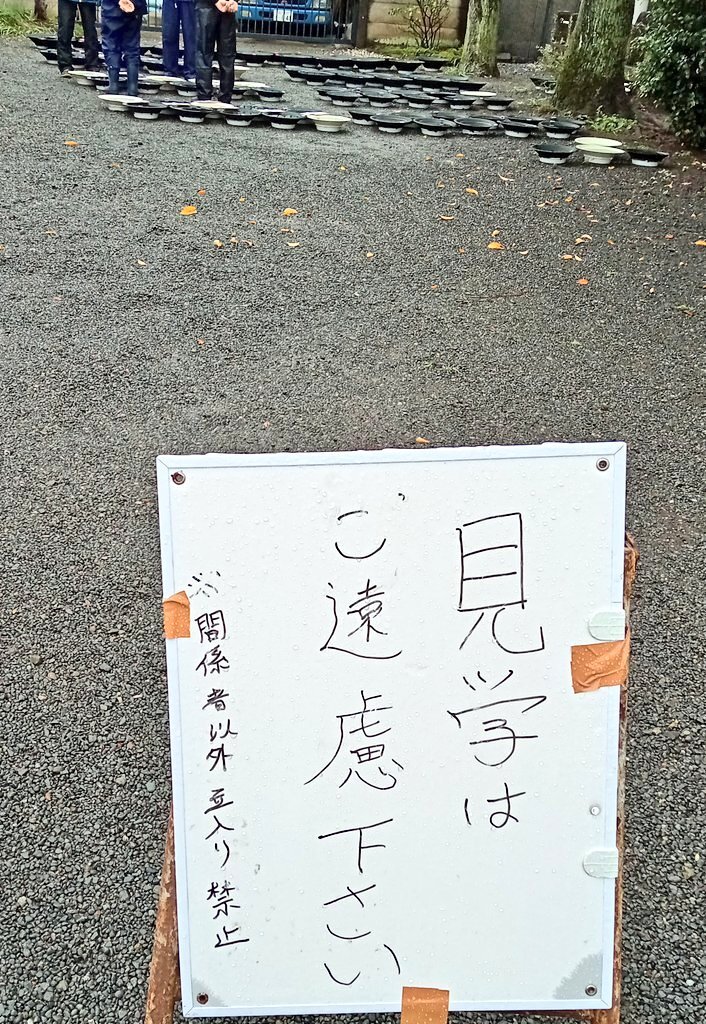 見学は
ご遠慮下さい
※間係者以外立入り禁止